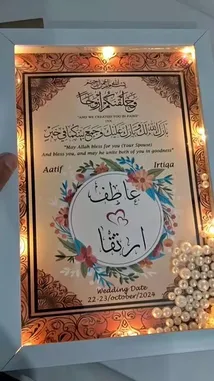 وخلقنكم أزوجا
AND WE CREATED YOU IN PAIRS
بارك الله لك وبارك عليك وجمع بينكما في خير
"May Allah bless for you (Your Spouse)
And bless you, and may he unite both of you in goodness"
Aatif Irtiqa
عاطف
ارتقا
Wedding Date
22-23/october/2024